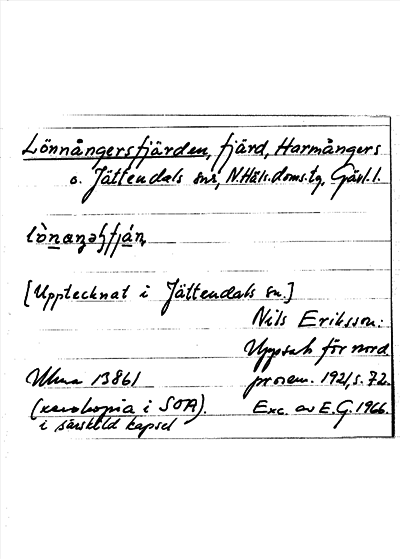 Lönnångersfjärden, fjärd, Harmångers
o. Jättendals snr, N.Häls.doms.tg, Gävl.l.
[Upptecknat i Jättendals sn.]
Nils Eriksson:
Uppsats för nord.
Ulma 13861 prosem. 1921, s. 72.
(xerokopia i SOA). Exc. av E.G. 1966.
i särskild kapsel